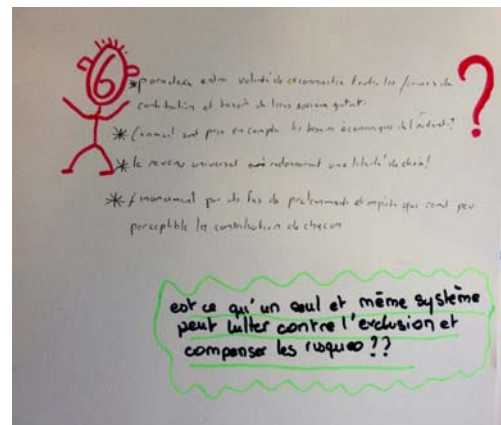 6 ?
* paradoxe entre volonté de reconnaître toutes les formes de
contribution et besoin de liens gratuit.
* Comment sont pris en compte les besoins économiques de l'aidant?
* le revenu universel redonnerait une liberté de choix!
* financement par des de prélèvements et impôts qui rend peu
perceptible les contribution de chacun
est ce qu'un seul et même système
peut lutter contre l'exclusion et
compenser les risques ??